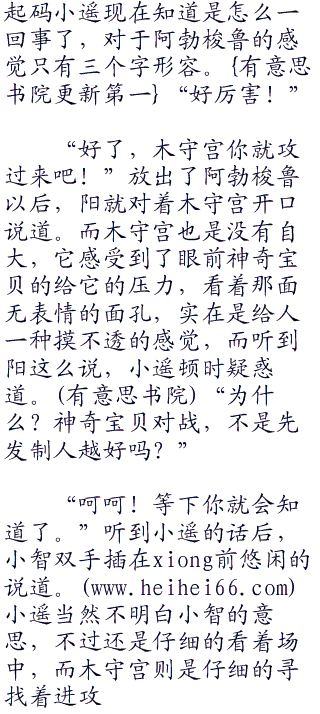 起码小遥现在知道是怎么一
回事了，对于阿勃梭鲁的感
觉只有三个字形容。{有意思
书院更新第一}“好厉害！”
“好了，木守宫你就攻
过来吧！”放出了阿勃梭鲁
以后，阳就对着木守宫开口
说道。而木守宫也是没有自
大，它感受到了眼前神奇宝
贝的给它的压力，看着那面
无表情的面孔，实在是给人
一种摸不透的感觉，而听到
阳这么说，小遥顿时疑惑
道。(有意思书院)“为什
么？神奇宝贝对战，不是先
发制人越好吗？”
“呵呵！等下你就会知
道了。”听到小遥的话后，
小智双手插在xiong前悠闲的
说道。(www.heihei66.com)
小遥当然不明白小智的意
思，不过还是仔细的看着场
中，而木守宫则是仔细的寻
找着进攻